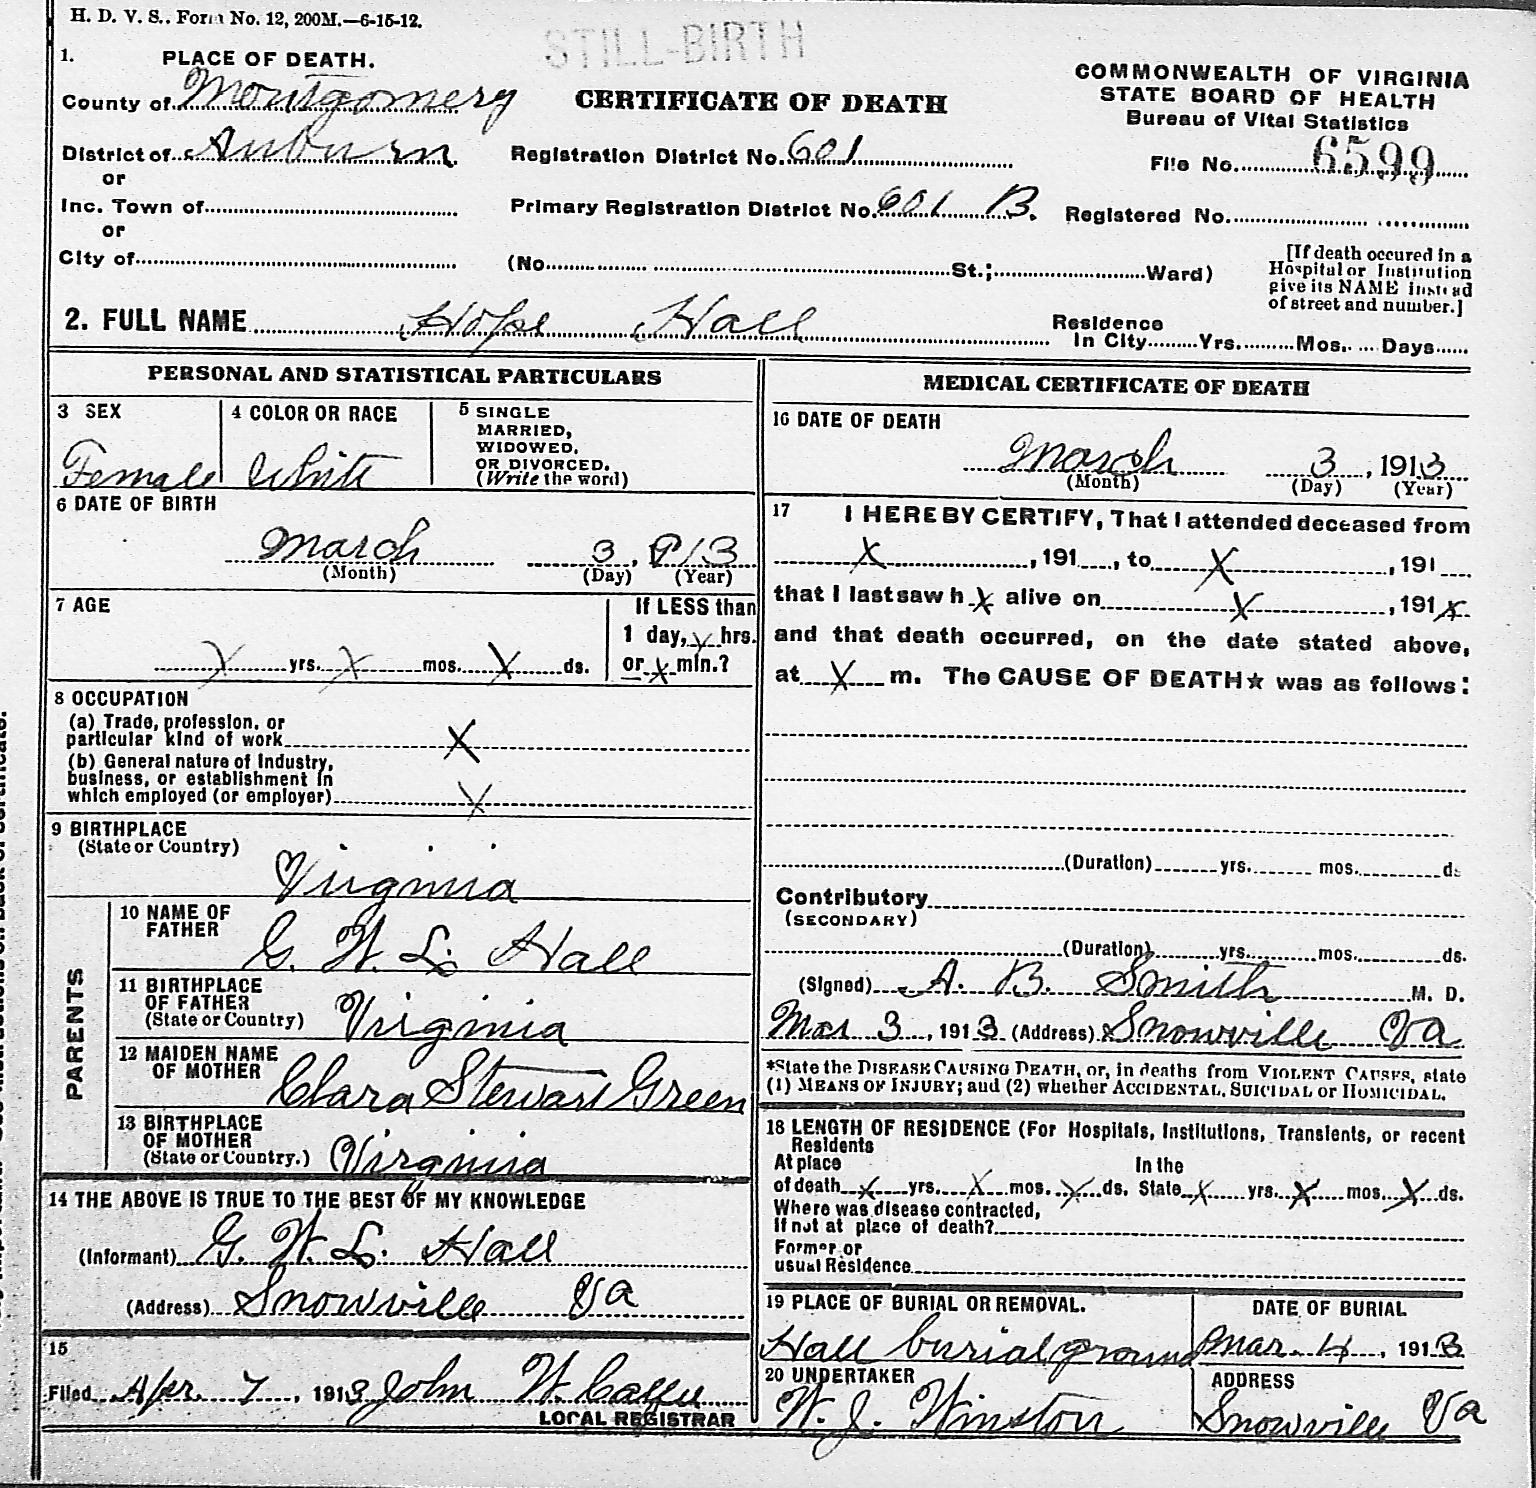 H. D. V. S.. Form No. 12, 200M.—6-15-12.
STILL-BIRTH
1. PLACE OF DEATH.
County of Montgomery
CERTIFICATE OF DEATH
COMMONWEALTH OF VIRGINIA
STATE BOARD OF HEALTH
Bureau of Vital Statistics
District of Auburn
Registration District No. 601
File No. 6599
or
Inc. Town of
Primary Registration District No. 601 B.
Registered No.
or
City of
(No. St.; Ward)
[If death occured in a
Hospital or Institution
give its NAME instead
of street and number.]
2. FULL NAME Hope Hall
Residence
In City Yrs. Mos. Days
PERSONAL AND STATISTICAL PARTICULARS
3 SEX
Female
4 COLOR OR RACE
White
5 SINGLE
MARRIED,
WIDOWED,
OR DIVORCED.
(Write the word)
6 DATE OF BIRTH
March 3, 913
(Month) (Day) (Year)
7 AGE
If LESS than
X yrs. X mos. X ds.
1 day, X hrs.
or X min.?
8 OCCUPATION
(a) Trade, profession, or
particular kind of work X
(b) General nature of Industry,
business, or establishment in
which employed (or employer) X
9 BIRTHPLACE
(State or Country)
Virginia
PARENTS
10 NAME OF
FATHER
G. W. L. Hall
11 BIRTHPLACE
OF FATHER
(State or Country) Virginia
12 MAIDEN NAME
OF MOTHER
Clara Stewart Green
13 BIRTHPLACE
OF MOTHER
(State or Country.) Virginia
14 THE ABOVE IS TRUE TO THE BEST OF MY KNOWLEDGE
(Informant) G. W. L. Hall
(Address) Snowville Va
15
Filed Apr. 7, 1913 John W.
LOCAL REGISTRAR
MEDICAL CERTIFICATE OF DEATH
16 DATE OF DEATH
March 3, 1913
(Month) (Day) (Year)
17 I HEREBY CERTIFY, That I attended deceased from
X, 191, to X, 191
that I last saw h X alive on X, 191 X
and that death occurred, on the date stated above,
at X m. The CAUSE OF DEATH★ was as follows:
(Duration) yrs. mos. ds
Contributory
(SECONDARY)
(Duration) yrs. mos. ds.
(Signed) A. B. Smith M. D.
Mar 3, 1913 (Address) Snowville Va
*State the DISEASE CAUSING DEATH, or, in deaths from VIOLENT CAUSES, state
(1) MEANS OF INJURY; and (2) whether ACCIDENTAL, SUICIDAL or HOMICIDAL.
18 LENGTH OF RESIDENCE (For Hospitals, Institutions, Transients, or recent
Residents
At place
of death X yrs. X mos. X ds.
In the
State X yrs. X mos. X ds.
Where was disease contracted,
If not at place of death?
Former or
usual Residence
19 PLACE OF BURIAL OR REMOVAL.
Hall burial ground
DATE OF BURIAL
Mar. 4, 1913
20 UNDERTAKER
W. J. Winston
ADDRESS
Snowville Va